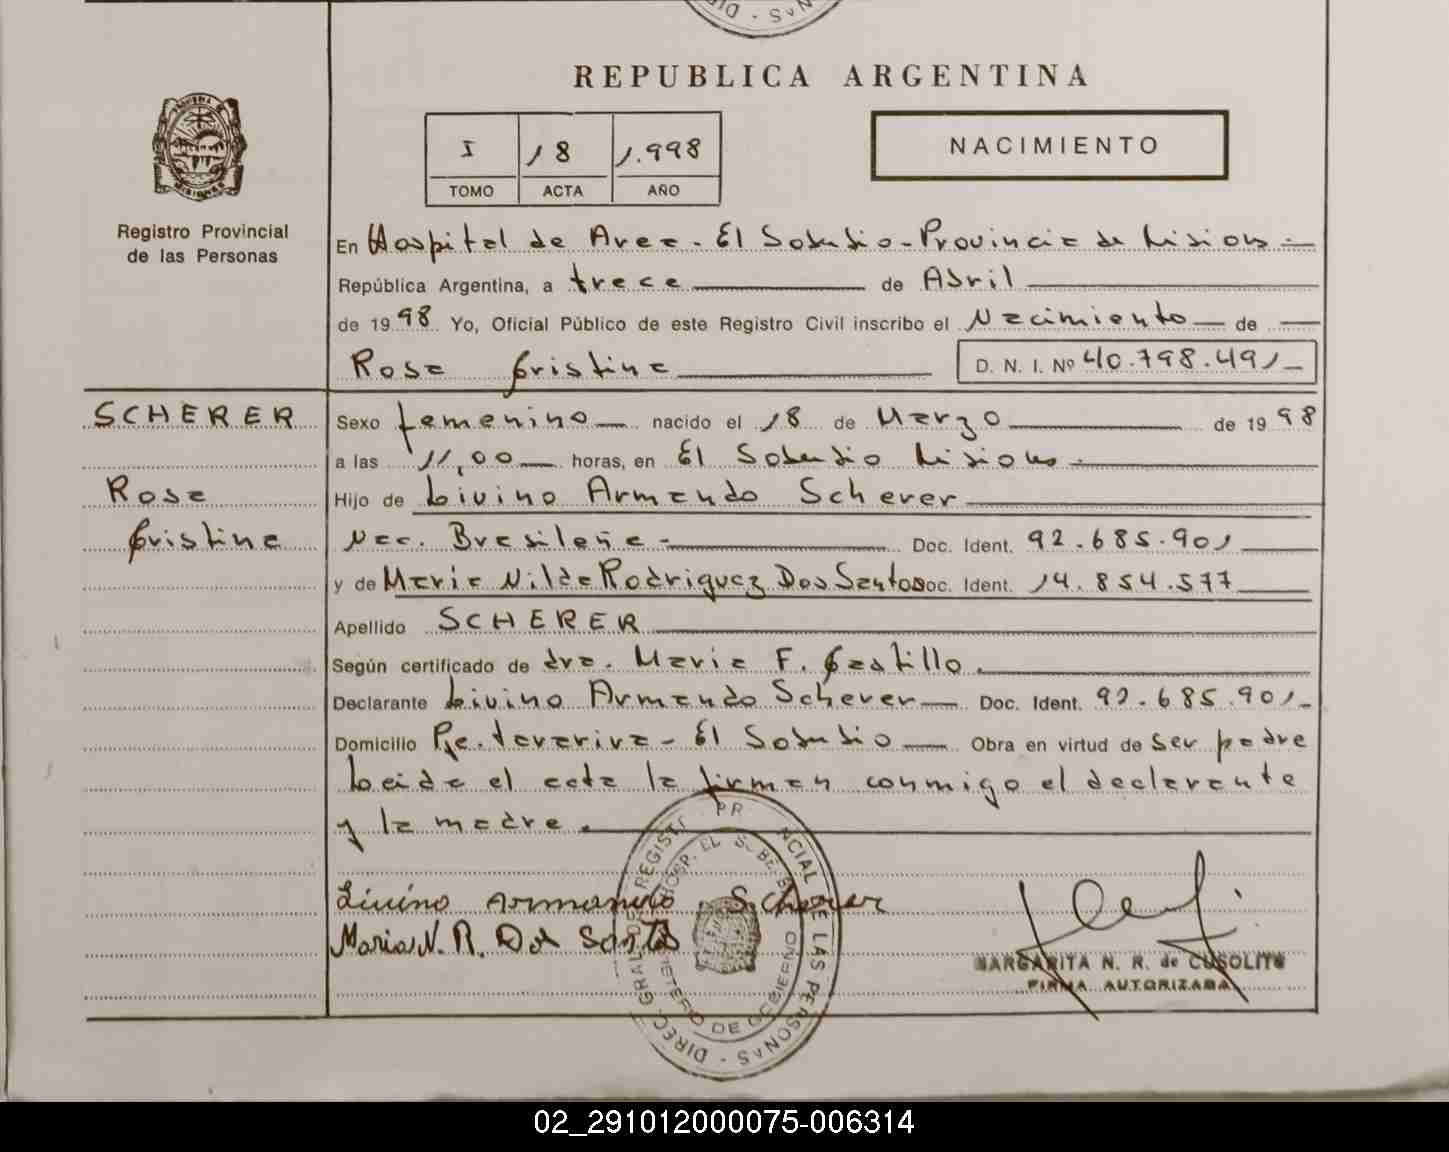 DIR - NAS
REPUBLICA ARGENTINA
I 18 1.998
TOMO ACTA AÑO
NACIMIENTO
Registro Provincial
de las Personas
En Hospital de Area - El Soberbio - Provincia de Misiones -
República Argentina, a trece de Abril
de 1998 Yo, Oficial Público de este Registro Civil inscribo el Nacimiento de
Rosa Cristina D. N. I. Nº 40.798.491-
SCHERER
Rosa
Cristina
Sexo femenino nacido el 18 de Marzo de 1998
a las 11,00 horas, en El Soberbio Misiones -
Hijo de Livino Armando Scherer
Nac. Brasileña - Doc. Ident. 92.685.901
y de Maria Nilda Rodriguez Dos Santos Doc. Ident. 14.854.577
Apellido SCHERER
Según certificado de dra. Maria F. Castillo.
Declarante Livino Armando Scherer Doc. Ident. 92.685.901-
Domicilio Pje. tavariva - El Soberbio Obra en virtud de ser padre
Leida el acta la firman conmigo el declarante
y la madre.
Livino Armando Scherer
Maria N. R. Dos Santos
MARGARITA N. R. de CUSOLITO
FIRMA AUTORIZADA
DIREC. GRAL. DE REGISTR PR NCIAL DE LAS PERSONAS -
HOSP. EL S. BERB
MINISTERIO DE GOBIERNO
02_291012000075-006314